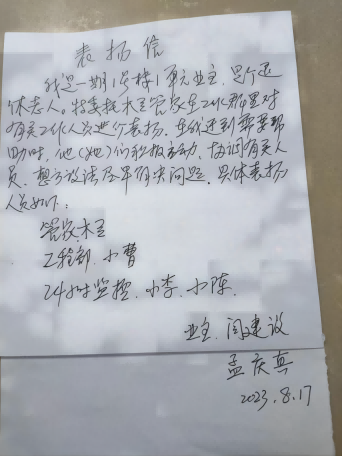 表扬信
我是一期1号楼1单元业主，是个退
休老人。特委托木子管家在工作群里对
有关工作人员进行表扬，在我遇到需要帮
助时，他（她）们积极主动，协调有关人
员，想方设法尽早解决问题，具体表扬
人员如下：
管家木子
工程部、小曹
24小时监控，小李、小陈。
业主、闫建议
孟庆真
2023.8.17